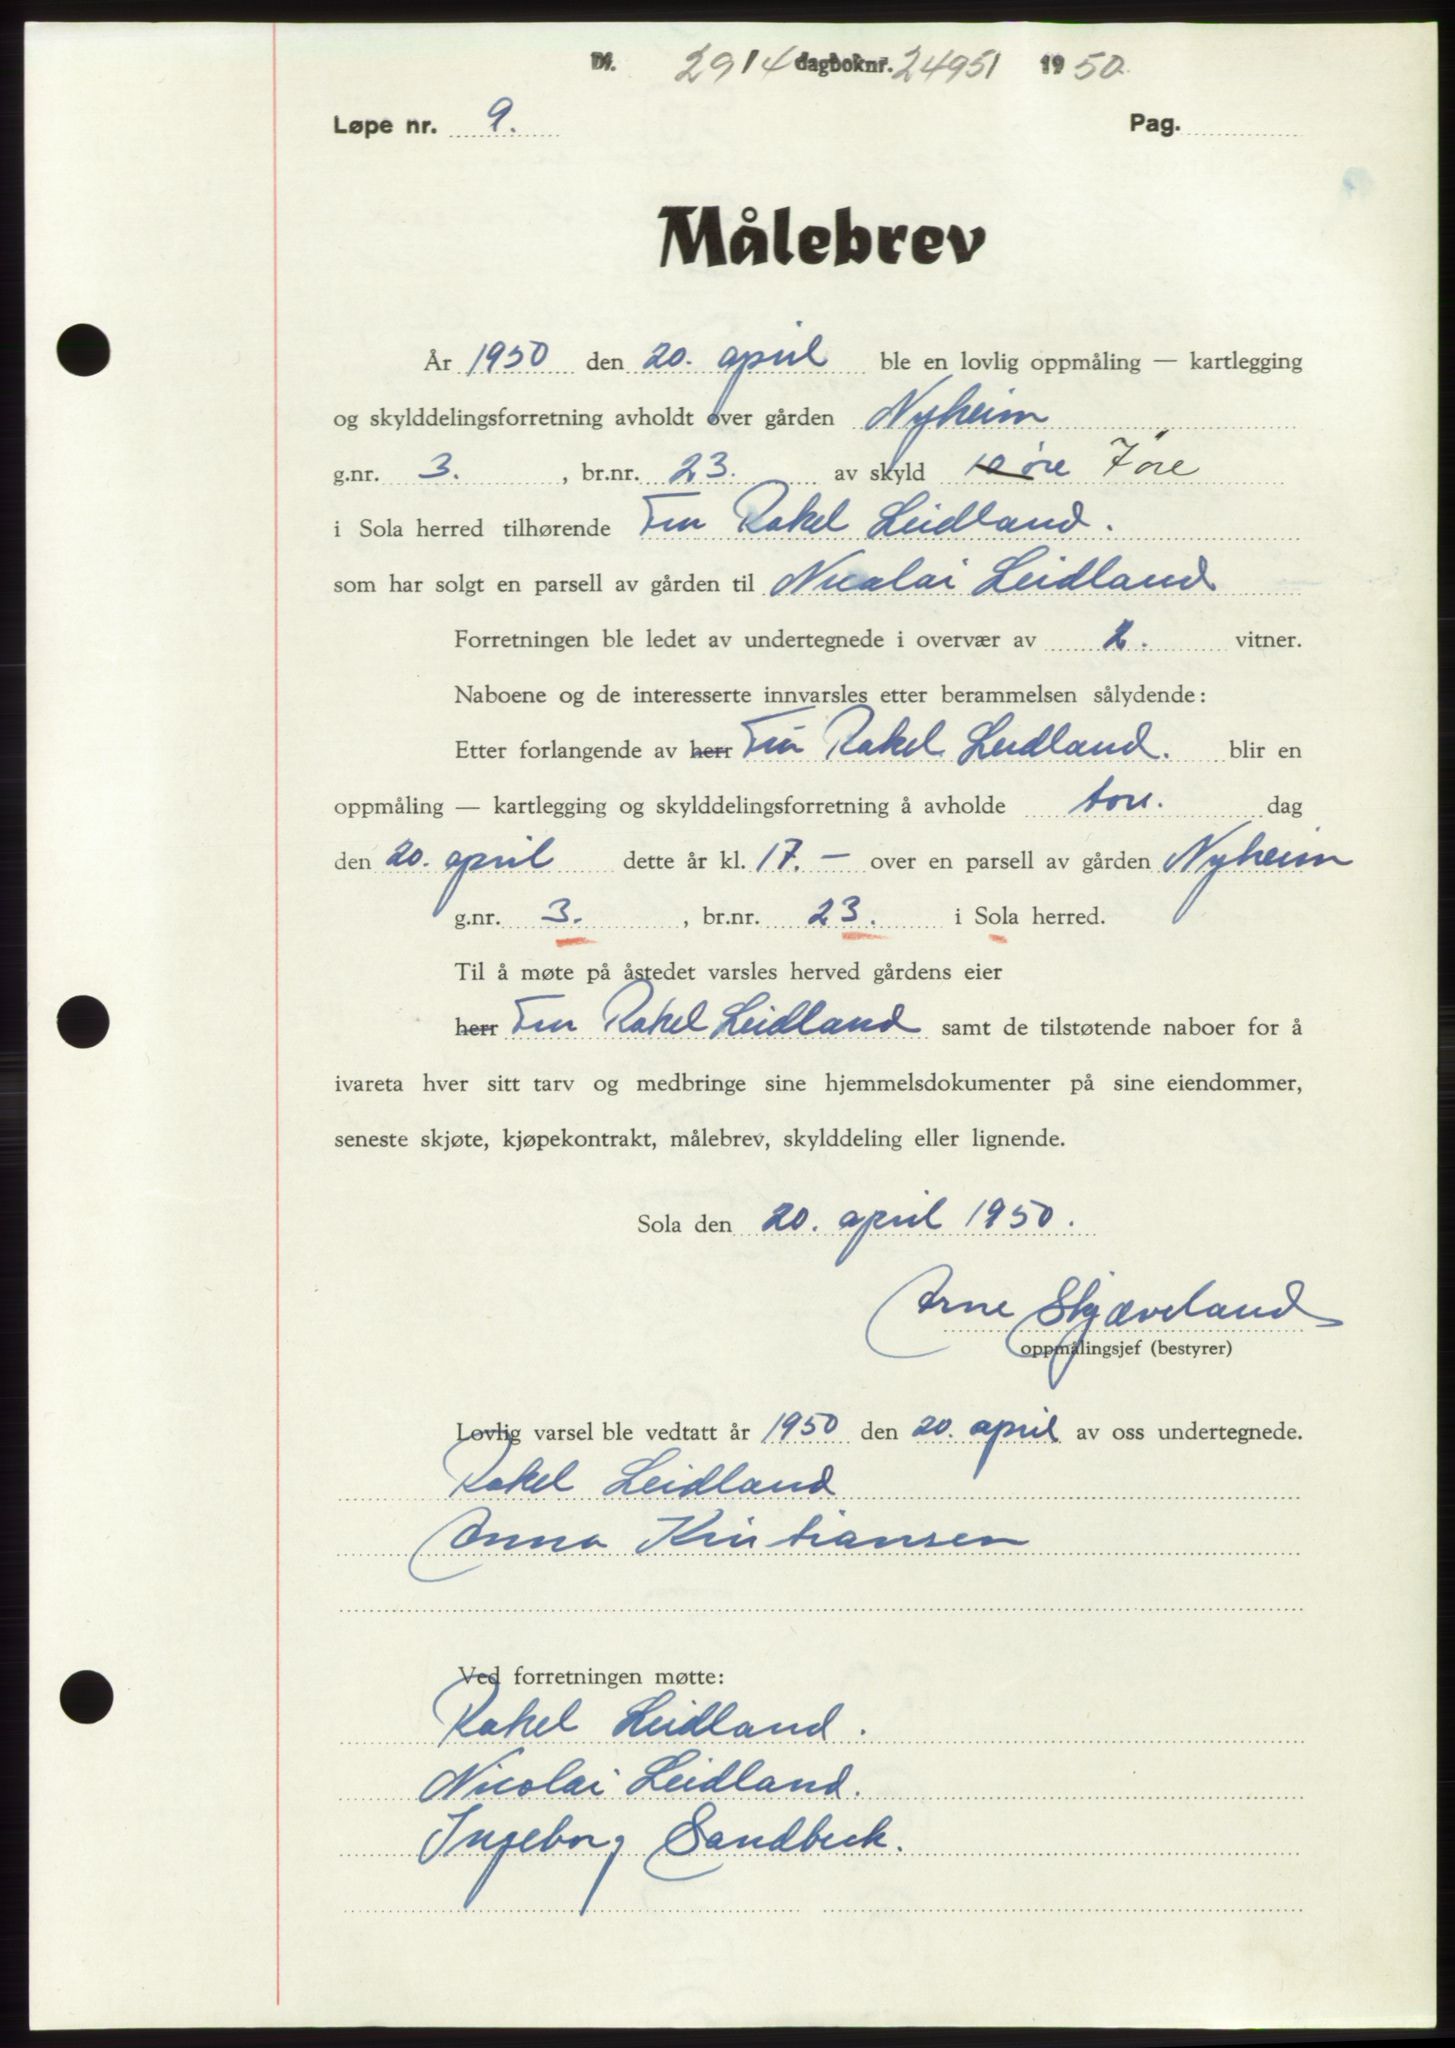 Nr. 2914 dagboknr. 24951 1950.
Løpe nr. 9. Pag.
Målebrev
År 1950 den 20. april ble en lovlig oppmåling — kartlegging
og skylddelingsforretning avholdt over gården Nyheim
g.nr. 3. , br.nr. 23. av skyld 10 øre 7 øre
i Sola herred tilhørende Fru Rakel Leidland.
som har solgt en parsell av gården til Nicolai Leidland
Forretningen ble ledet av undertegnede i overvær av 2. vitner.
Naboene og de interesserte innvarsles etter berammelsen sålydende:
Etter forlangende av herr Fru Rakel Leidland. blir en
oppmåling — kartlegging og skylddelingsforretning å avholde tors. dag
den 20. april dette år kl. 17. — over en parsell av gården Nyheim
g.nr. 3. , br.nr. 23. i Sola herred.
Til å møte på åstedet varsles herved gårdens eier
herr Fru Rakel Leidland samt de tilstøtende naboer for å
ivareta hver sitt tarv og medbringe sine hjemmelsdokumenter på sine eiendommer,
seneste skjøte, kjøpekontrakt, målebrev, skylddeling eller lignende.
Sola den 20. april 1950.
Arne Skjæveland
oppmålingsjef (bestyrer)
Lovlig varsel ble vedtatt år 1950 den 20. april av oss undertegnede.
Rakel Leidland
Anna Kristiansen
Ved forretningen møtte:
Rakel Leidland.
Nicolai Leidland.
Ingeborg Sandbeck.